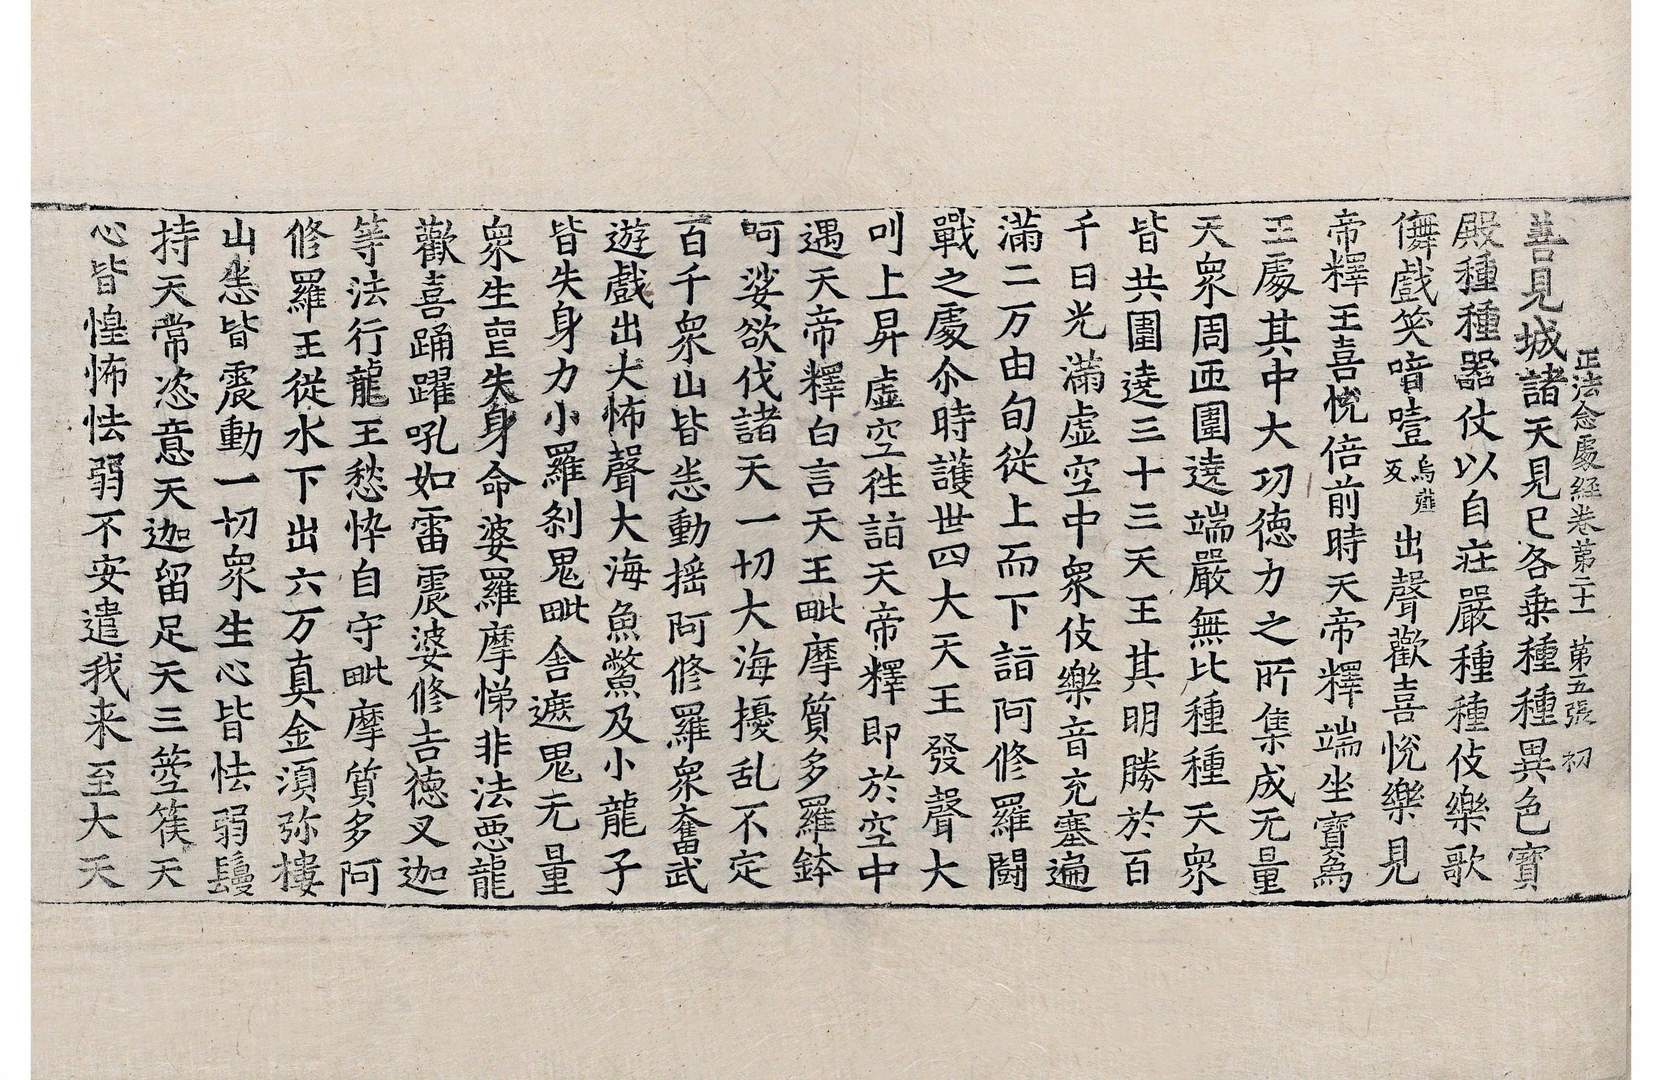 正法念處經卷第二十一 第五張 初
善見城諸天見已各乗種種異色寶
殿種種器仗以自莊嚴種種伎樂歌
儛戲笑喑噎烏雞反出聲歡喜悅樂見
帝釋王喜悅倍前時天帝釋端坐寶爲
王處其中大功德力之所集成无量
天衆周匝圍遶端嚴無比種種天衆
皆共圍遶三十三天王其明勝於百
千日光滿虛空中衆伎樂音充塞遍
滿二万由旬從上而下詣阿修羅鬪
戰之處尒時護世四大天王發聲大
叫上昇虛空徃詣天帝釋即於空中
遇天帝釋白言天王毗摩質多羅鉢
呵娑欲伐諸天一切大海擾乱不定
百千衆山皆悉動搖阿修羅衆奮武
遊戲出大怖聲大海魚鱉及小龍子
皆失身力小羅剎鬼毗舍遮鬼无量
衆生亡失身命婆羅摩悌非法惡龍
歡喜踊躍吼如雷震婆修吉德叉迦
等法行龍王愁悴自守毗摩質多阿
修羅王從水下出六万真金須弥樓
山悉皆震動一切衆生心皆怯弱鬘
持天常恣意天迦留足天三箜篌天
心皆惶怖怯弱不安遣我来至大天